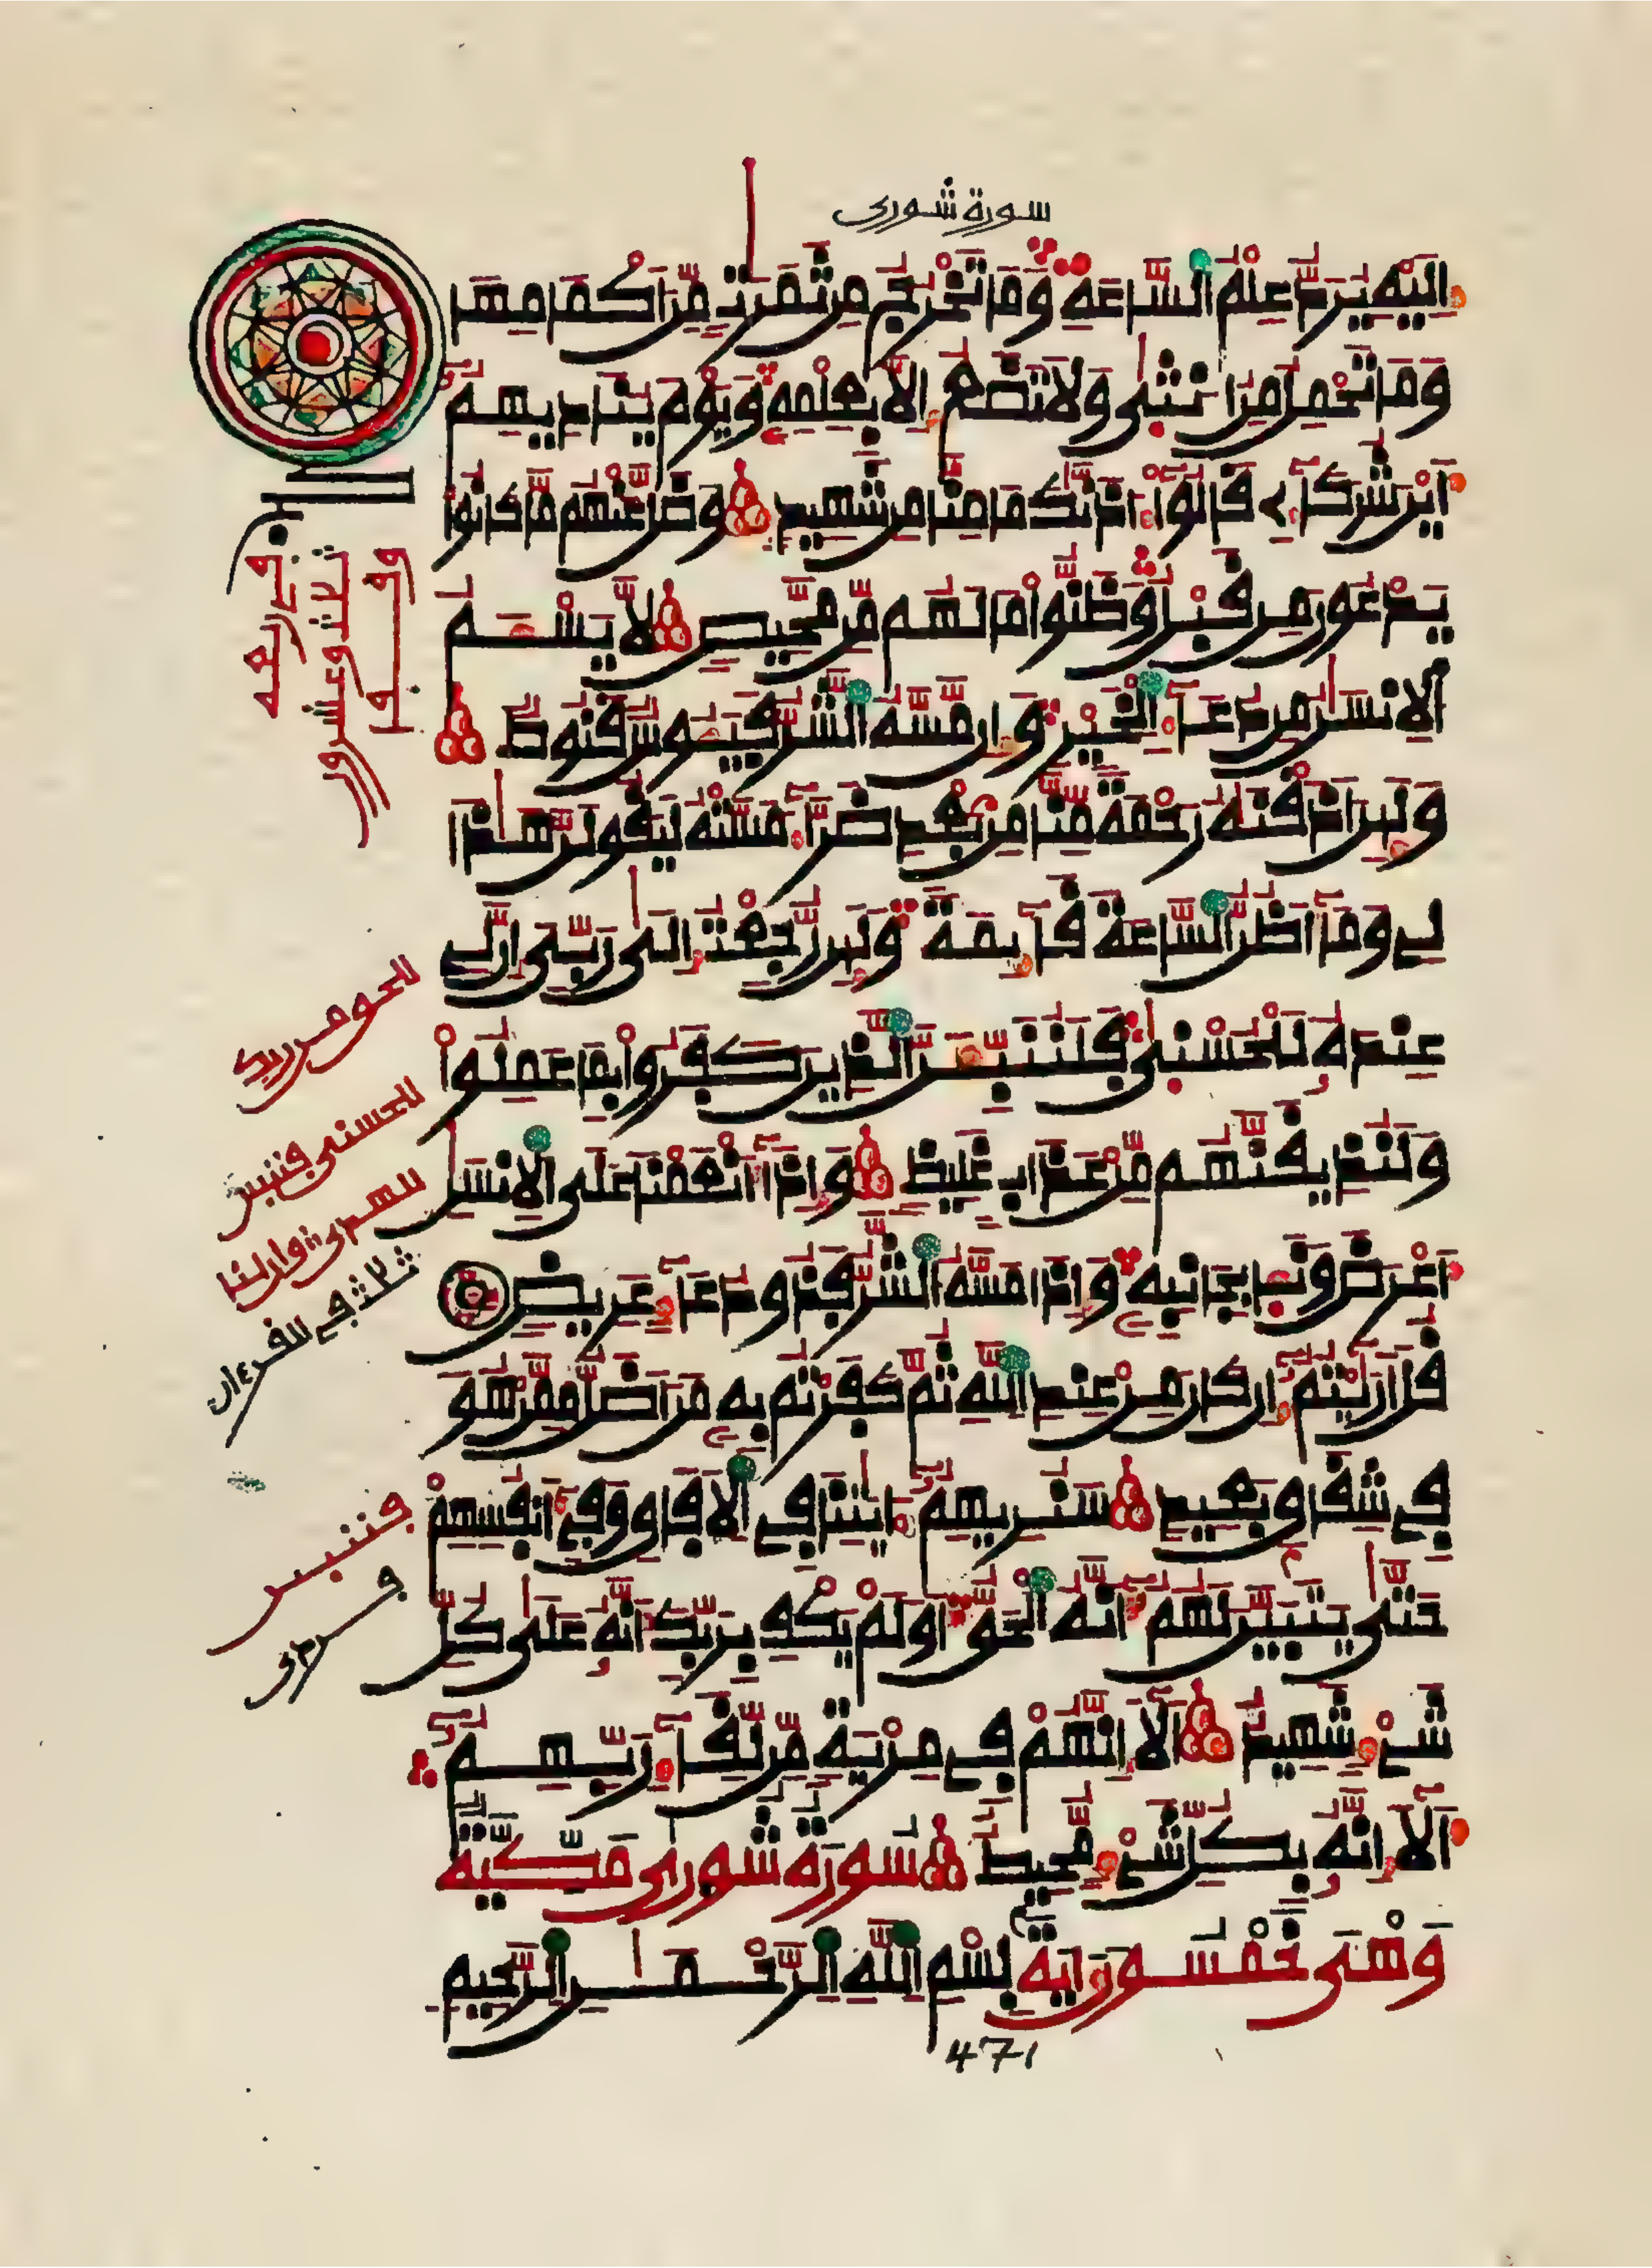 سورة شورى
إِلَيْهِ يُرَدُّ عِلْمُ السَّاعَةِ وَمَا تَخْرُجُ مِن ثَمَرَٰتٍ مِّنَ اَكْمَامِهَا
وَمَا تَحْمِلُ مِنُ انثٰى وَلَا تَضَعُ إِلَّا بِعِلْمِهِ وَيَوْمَ يُنَادِيهِمُ
أَيْنَ شُرَكَآءِے قَالُوٓاْ ءَاذَنَّٰكَ مَا مِنَّا مِن شَهِيدٍ وَضَلَّ عَنْهُم مَّا كَانُواْ
يَدْعُونَ مِن قَبْلُ وَظَنُّواْ مَا لَهُم مِّن مَّحِيصٍ لَّا يَسْـَٔمُ
الْإِنسَٰنُ مِن دُعَآءِ الْخَيْرِ وَإِن مَّسَّهُ الشَّرُّ فَيَـُٔوسٌ قَنُوطٌ
وَلَئِنَ اَذَقْنَٰهُ رَحْمَةً مِّنَّا مِن بَعْدِ ضَرَّآءَ مَسَّتْهُ لَيَقُولَنَّ هَٰذَا
لِے وَمَآ أَظُنُّ السَّاعَةَ قَآئِمَةً وَلَئِن رُّجِعْتُ إِلَىٰ رَبِّيَ إِنَّ لِے
عِندَهُ لَلْحُسْنٰى فَلَنُنَبِّئَنَّ الذِينَ كَفَرُواْ بِمَا عَمِلُواْ
وَلَنُذِيقَنَّهُم مِّنْ عَذَابٍ غَلِيظٍ وَإِذَآ أَنْعَمْنَا عَلَى الْإِنسَٰنِ
أَعْرَضَ وَنَـَٔا بِجَانِبِهِ وَإِذَا مَسَّهُ الشَّرُّ فَذُو دُعَآءٍ عَرِيضٍ
قُلَ اَرَٰٓيْتُمُ إِن كَانَ مِنْ عِندِ اللَّهِ ثُمَّ كَفَرْتُم بِهِ مَنَ اَضَلُّ مِمَّنْ هُوَ
فِے شِقَاقٍ بَعِيدٍ سَنُرِيهِمُ ءَايَٰتِنَا فِے الْأٓفَاقِ وَفِےٓ أَنفُسِهِمْ
حَتَّىٰ يَتَبَيَّنَ لَهُمُ أَنَّهُ الْحَقُّ أَوَلَمْ يَكْفِ بِرَبِّكَ أَنَّهُ عَلَىٰ كُلِّ
شَےْءٍ شَهِيدٌ أَلَآ إِنَّهُمْ فِے مِرْيَةٍ مِّن لِّقَآءِ رَبِّهِمُ
أَلَآ إِنَّهُ بِكُلِّ شَےْءٍ مُّحِيطٌ سُورَةُ شُورَىٰ مَكِّيَّةٌ
وَهْىَ خَمْسُونَ ءَايَةً بِسْمِ اللَّهِ الرَّحْمَٰنِ الرَّحِيمِ
471
ثلاث وعشرون
ثلاث في القرءان